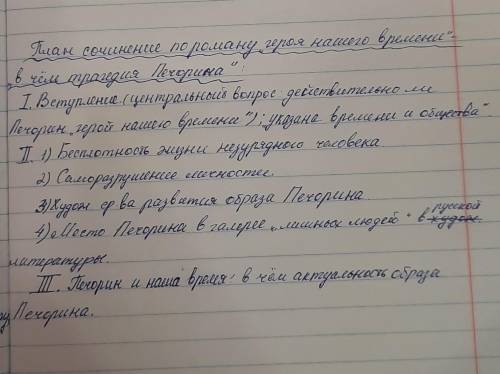 План сочинение по роману „героя нашего времени"-
„в чём трагедия Печорина":
I. Вступление (центральный вопрос: действительно ли
Печорин „герой нашего времени"); „указана времени и общества"
II. 1) Бесплотность жизни незурядного человека.
2) Саморазрушение личностее.
3) Худож ср ва развития образа Печорина.
4) Место Печорина в галерее „лишних людей" в русской
литературы
III. Печорин и наша время: в чём актуальность образа
Печорина.